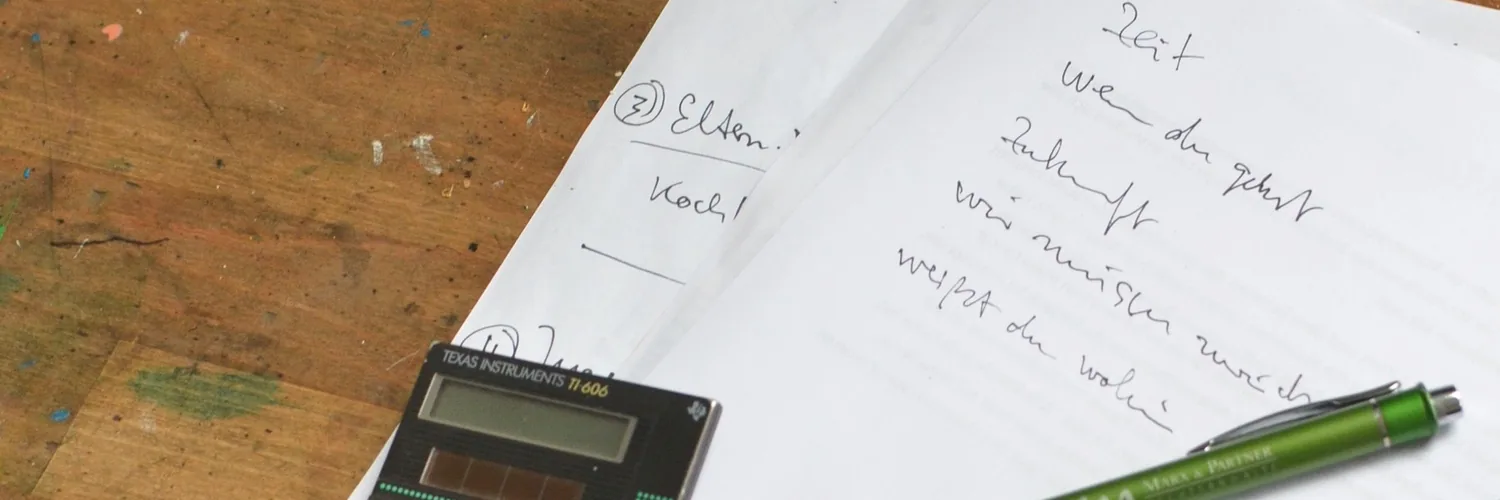 Zeit
wenn du gehst
Zukunft
wir müssen
weißt du wohin
3) Eltern:
Koch
TEXAS INSTRUMENTS TI-606
MARX & PARTNER